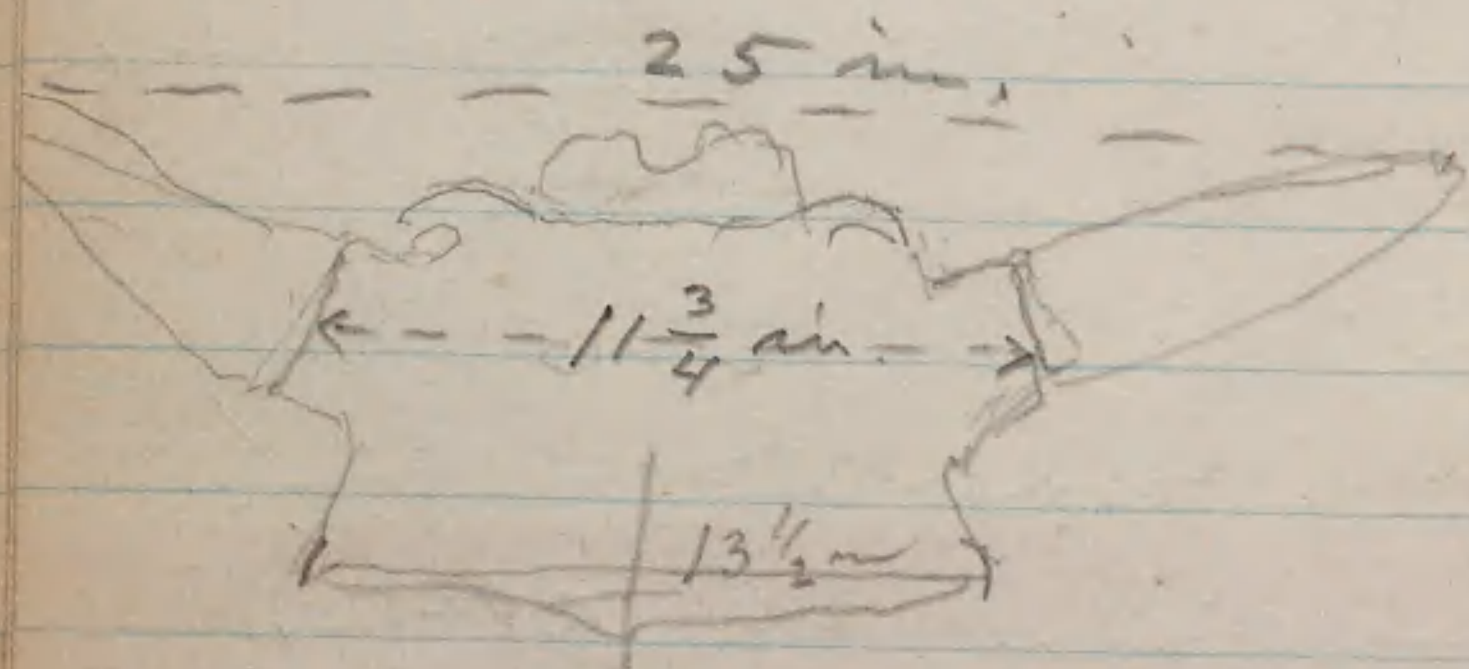 25 in.
11 3/4 in.
13 1/2 in